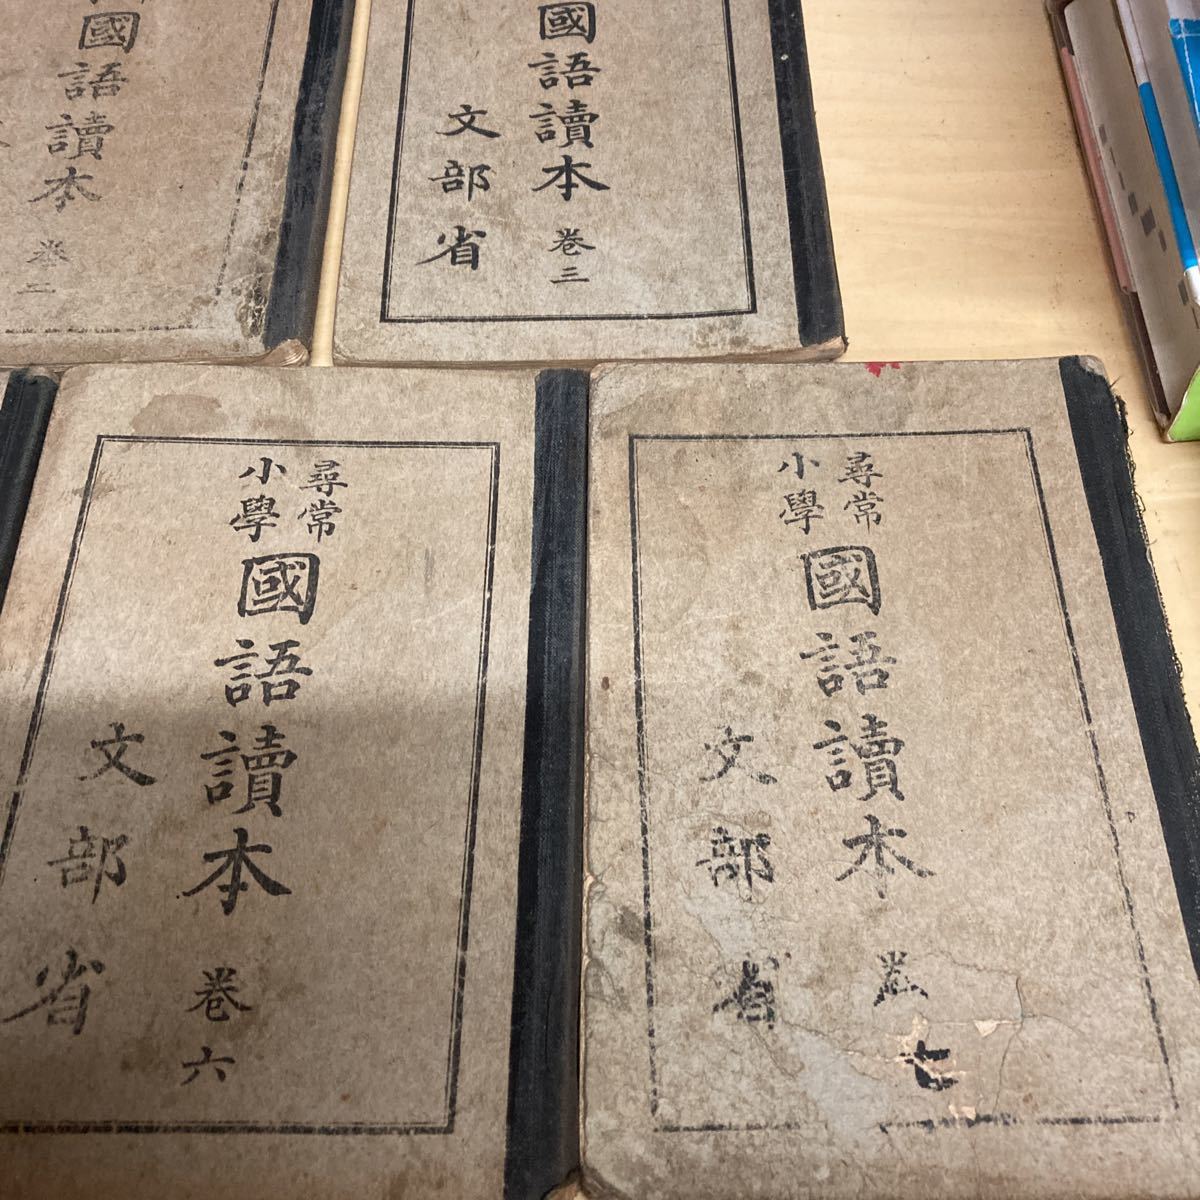 國語讀本
卷三
文部省
國語讀本
卷二
尋常
小學
國語讀本
卷七
文部省
尋常
小學
國語讀本
卷六
文部省